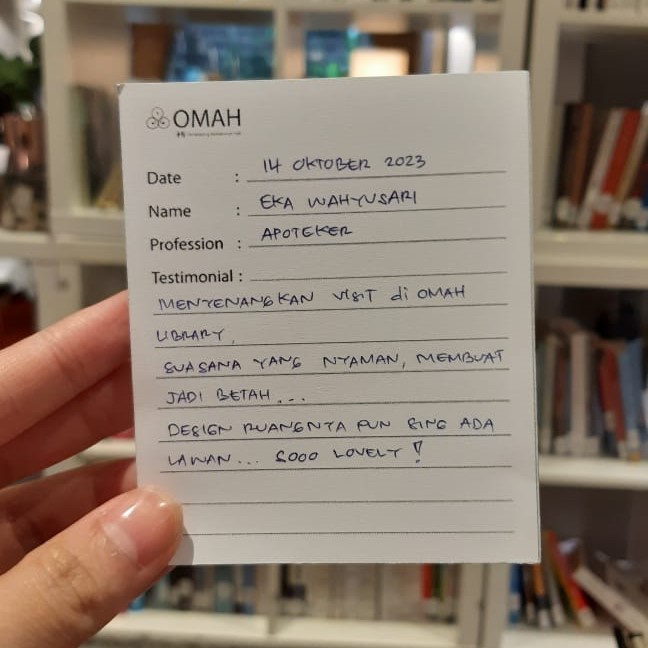 OMAH
Date : 14 OKTOBER 2023
Name : EKA WAHYUSARI
Profession : APOTEKER
Testimonial :
MENYENANGKAN VISIT di OMAH
LIBRARY,
SUASANA YANG NYAMAN, MEMBUAT
JADI BETAH...
DESIGN RUANGNYA PUN SING ADA
LAWAN... SOOO LOVELY!